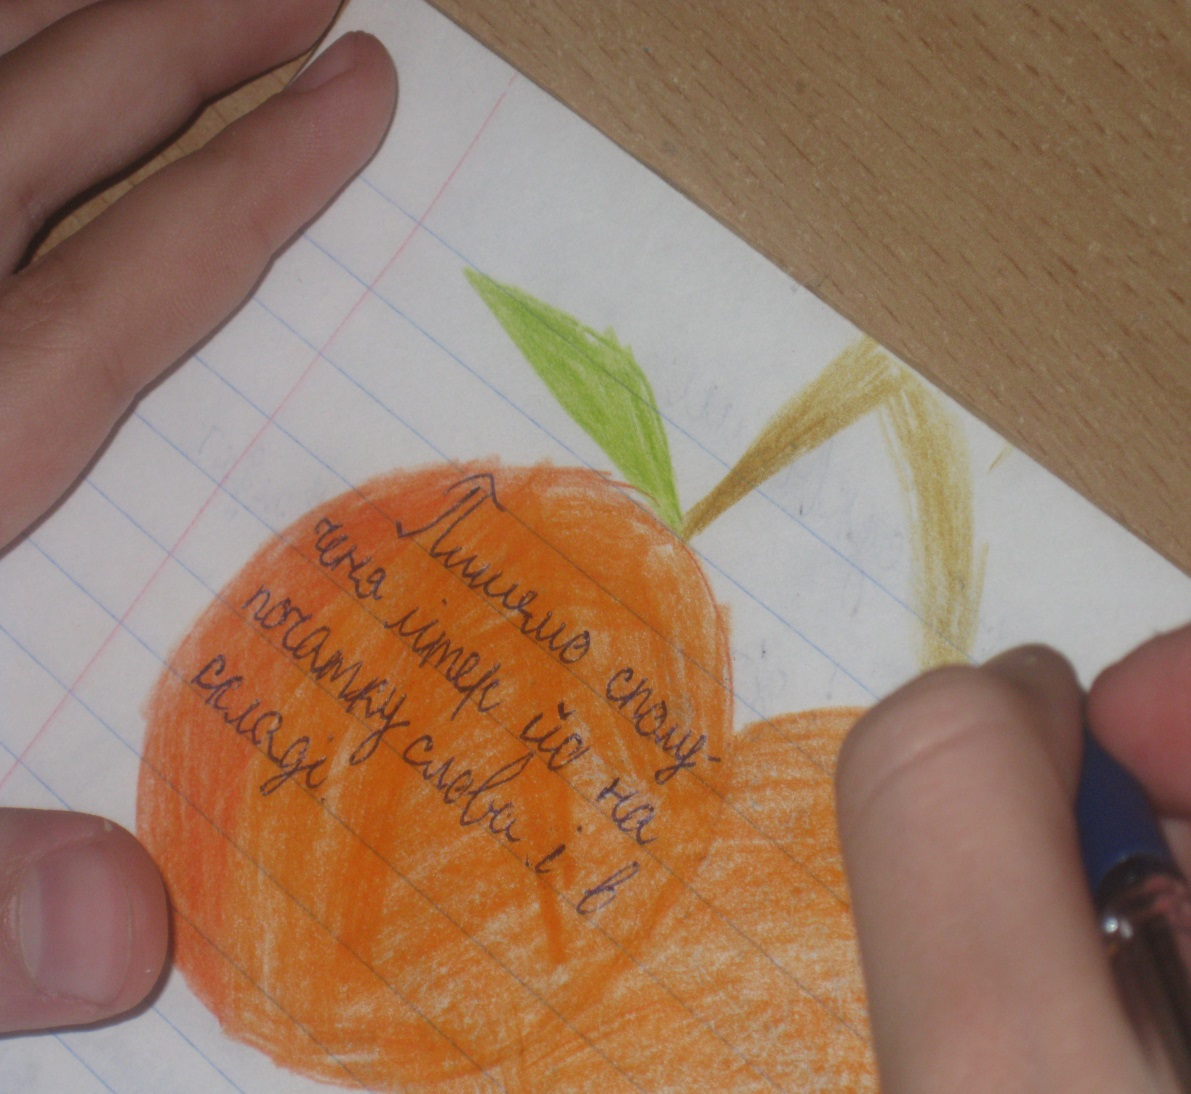 Пишемо сполу-
ченя літер йо на
початку слова і в
складі.